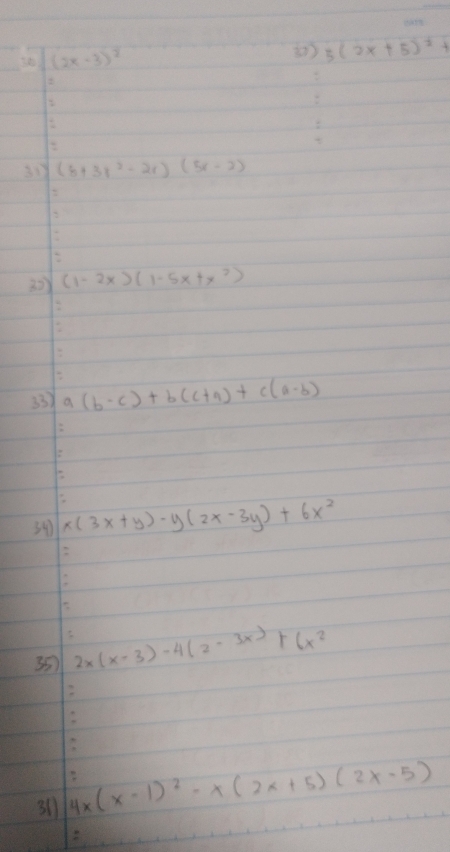 30) (2x-3)²
37) 3(2x+5)² +
=
=
=
=
31) (5+3x²-2x) (5x-2)
=
=
=
=
32) (1-2x)(1-5x+x²)
=
=
=
=
33) a(b-c)+b(c+a)+c(a-b)
=
=
=
=
34) x(3x+y)-y(2x-3y)+6x²
=
=
=
=
35) 2x(x-3)-4(2-3x)+6x²
=
=
=
=
36) 4x(x-1)²-x(2x+5)(2x-5)
=